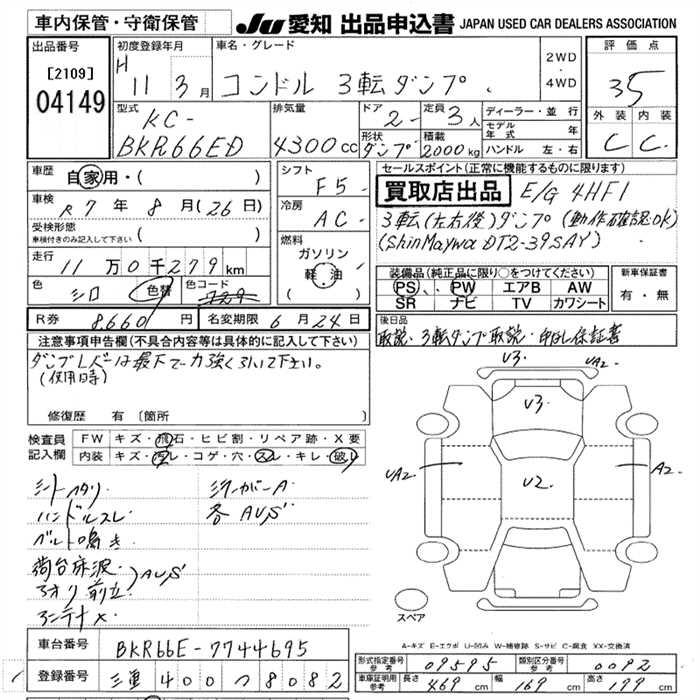 車内保管・守衛保管
JU 愛知 出品申込書 JAPAN USED CAR DEALERS ASSOCIATION
出品番号
[2109]
04149
初度登録年月
H 11 3月
車名・グレード
コンドル 3転ダンプ
2WD
・
4WD
評価点
3.5
外装 内装
C C
型式
KC-
BKR66ED
排気量
4300cc
ドア
2-
形状
ダンプ
定員
3人
積載
2000kg
ディーラー・並行
モデル年式 年
ハンドル 左・右
車歴
自家用・( )
車検
R7年8月(26日)
受検形態
車検付きのみ記入して下さい ( )
走行
11万0千279km
色
シロ
色替
色コード
729
シフト
F5-
冷房
AC-
燃料
ガソリン
軽・油
( )
セールスポイント(正常に機能するものに限ります)
買取店出品 E/G 4HF1
3転(左右後)ダンプ(動作確認OK)
(ShinMaywa DT2-39SAY)
装備品(純正品に限り○をつけてください)
PS PW エアB AW
SR ナビ TV カワシート
新車保証書
有・無
R券 8,660円 名変期限 6月24日
後日品
取説、3転ダンプ取説・申出し保証書
注意事項申告欄(不具合内容等は具体的に記入して下さい)
ダンプLバーは最下で力強く引いて下さい。
(使用時)
修復歴 有 〔箇所
検査員記入欄
FW キズ・飛石・ヒビ割・リペア跡・X要
内装 キズ・汚レ・コゲ・穴・スレ・キレ・破レ
シートヘタリ
ハンドルスレ
ベルト鳴き
荷台床波
アオリ 前立 AUS
アンテナ×
ミラーガバーA
各AUS
V3
UA2
V3
UA2
V2
A2
スペア
A-キズ E-エクボ U-凹み W-補修跡 S-サビ C-腐食 XX-交換済
車台番号
BKR66E-7744695
登録番号
三重 400 つ 8082
形式指定番号
参考
09595
類別区分番号
参考
0092
車庫証明用
参考
長さ 469cm 幅 169cm 高さ 199cm